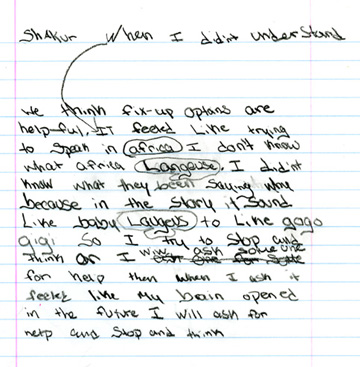 Shakur When I didint understand
we think fix-up optans are
helpful. IT feeled Like trying
to speak in africa I don't know
what africa Langause. I didint
know what they been saying why
because in the story it sound
Like baby Laugegs to Like gogo
gigi So I try to stop and
think or I will ask some one
for help then when I ask it
feeled like my brain opened
in the future I will ask for
help and stop and think